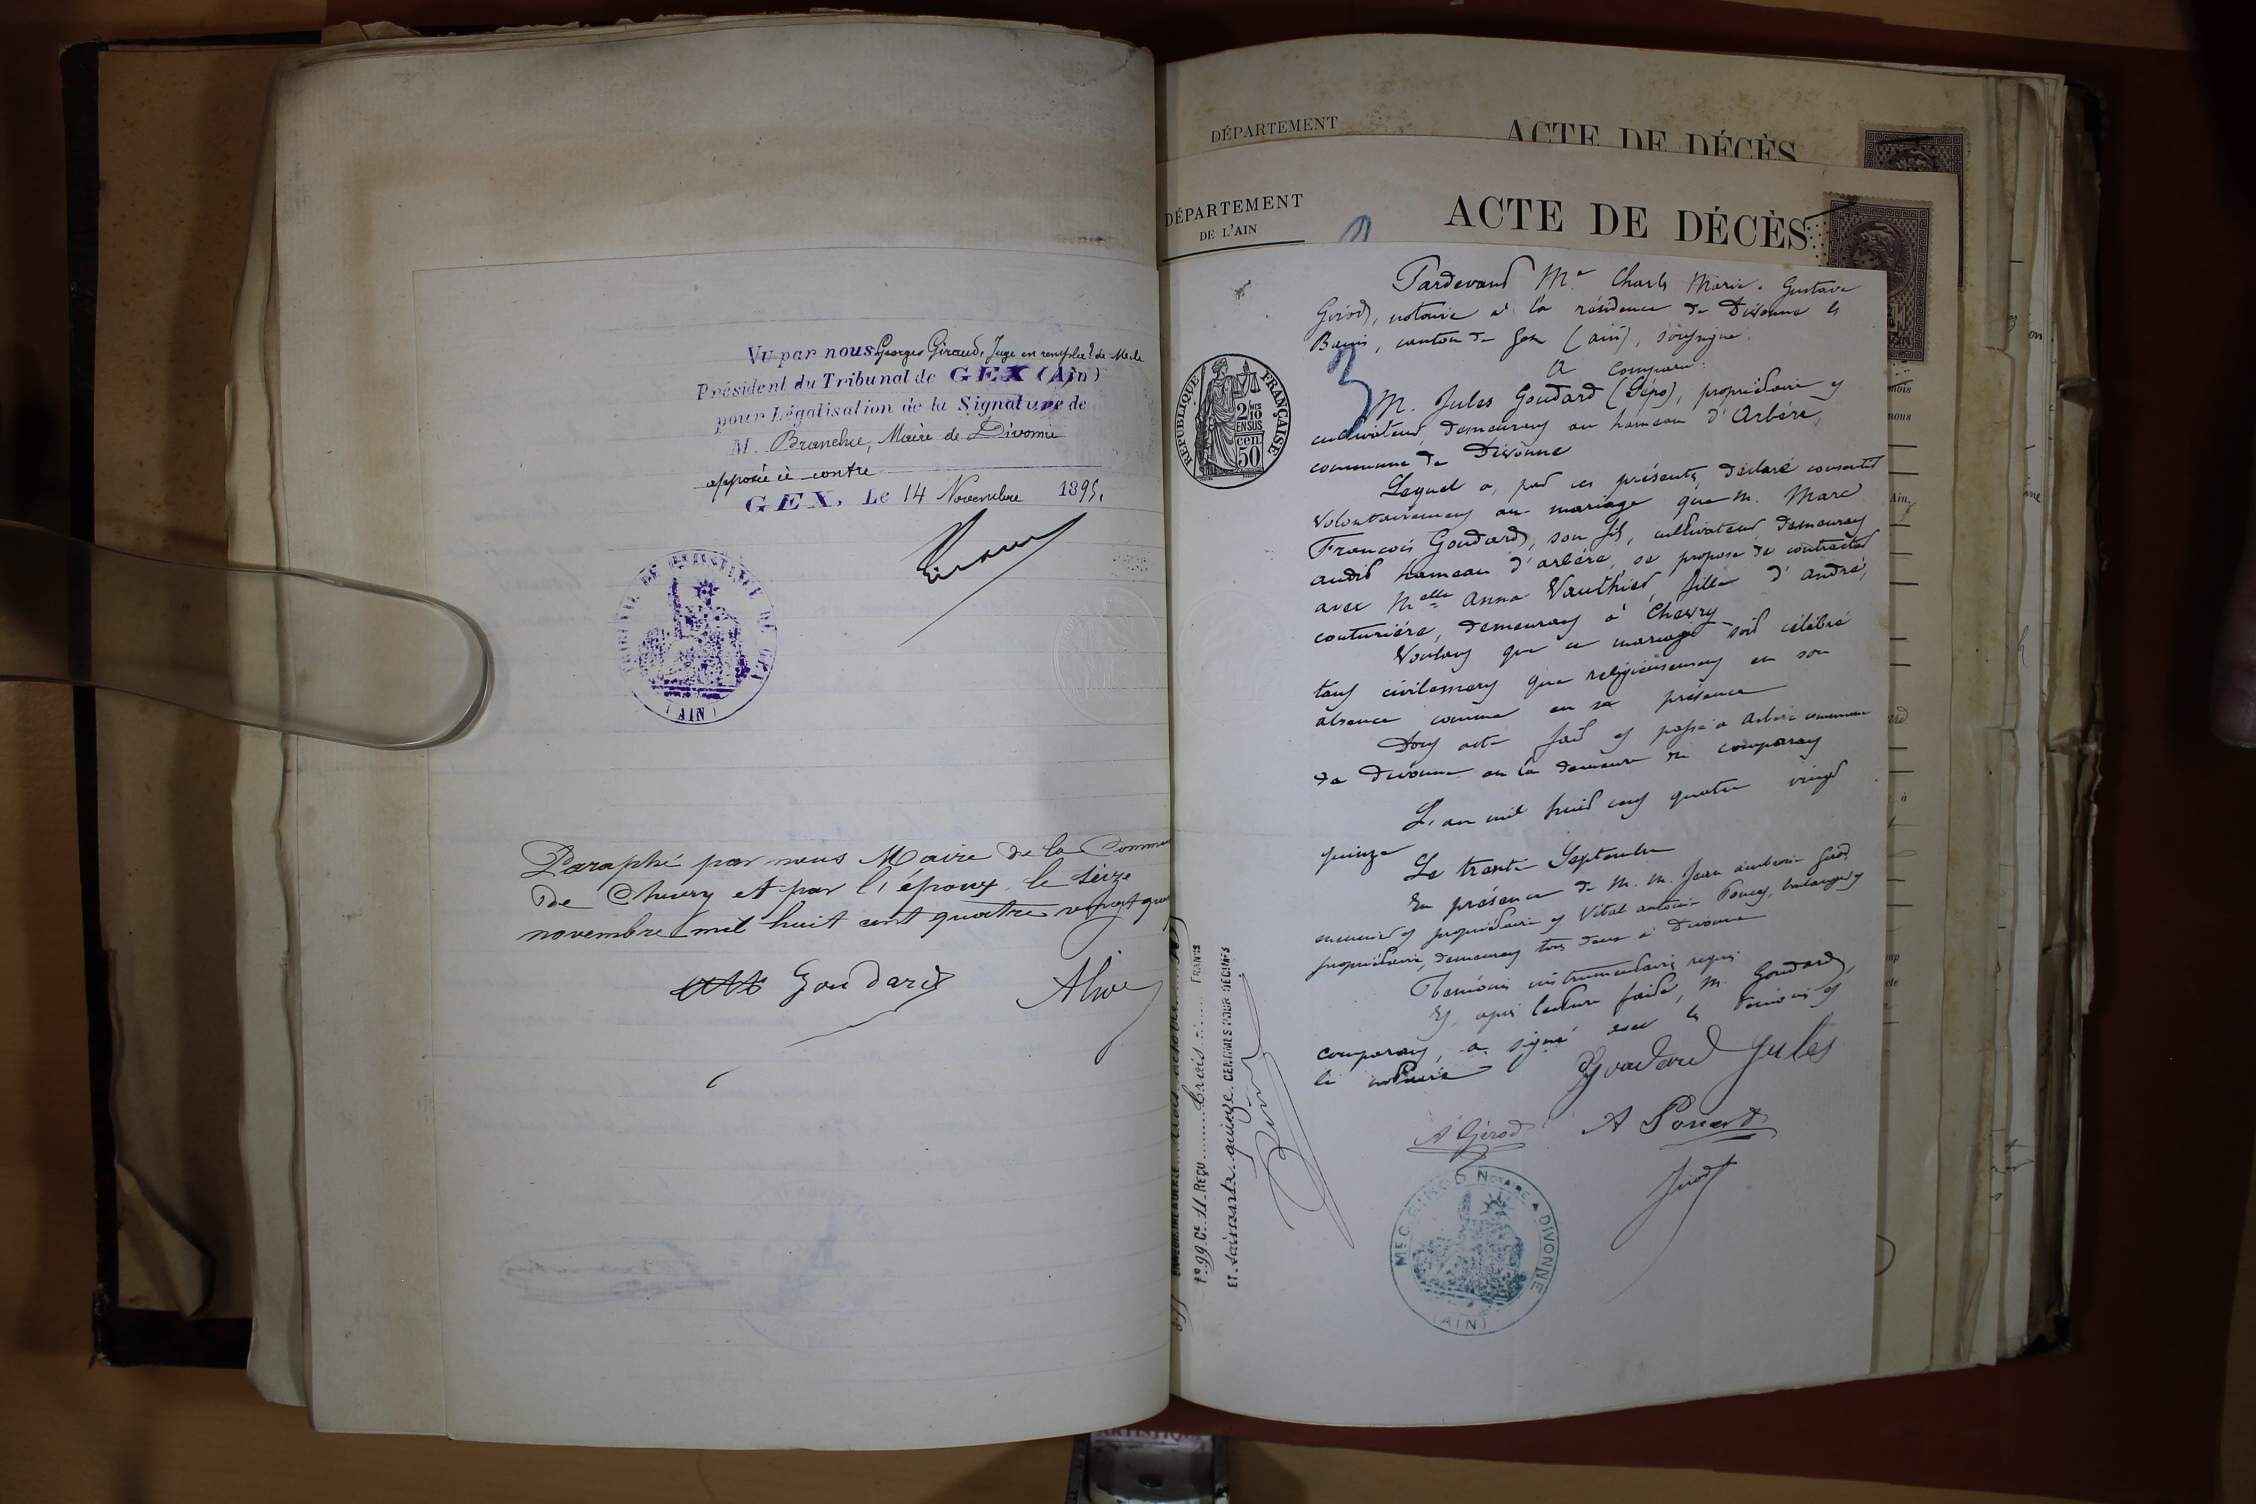 Vu par nous Georges Giraud, Juge en remplac.t de Mr le
Président du Tribunal de GEX (Ain)
pour Légalisation de la Signature de
M. Branche, Maire de Divonne
apposée ci-contre
GEX, Le 14 Novembre 1895.
(AIN)
Paraphé par nous Maire de la Commun
de Chevry et par l'époux le seize
novembre mil huit cent quatre vingt
Goudard
DÉPARTEMENT
ACTE DE DÉCÈS
DÉPARTEMENT
DE L'AIN
ACTE DE DÉCÈS
3
RÉPUBLIQUE FRANÇAISE
2/10 EN SUS
50 cen
Pardevant Me Charles Marie Gustave
Girod, notaire à la résidence de Divonne les
Bains, canton de Gex (ain), soussigné.
A comparu:
M. Jules Goudard (Dépo), propriétaire et
cultivateur, demeurant au hameau d'Arbère,
commune de Divonne
Lequel a, par ces présentes, déclaré consentir
volontairement au mariage que M. Marc
François Goudard, son fils, cultivateur, demeurant
audit hameau d'arbère, se propose de contracter
avec Melle Anna Vauthier, fille d'André,
couturière, demeurant à Chevry
Voulant que ce mariage soit célébré
tant civilement que religieusement en son
absence comme en sa présence
Dont acte fait et passé à Arbère commune
de Divonne en la demeure du comparant
L'an mil huit cent quatre vingt
quinze
Le trente Septembre
En présence de M. M. Jean ambroise Girod
et propriétaire et Vital antoine Poncet, boulanger et
propriétaire, demeurant tous deux à Divonne
Témoins instrumentaires requis.
Et, après lecture faite, M. Goudard,
comparant, a signé avec les témoins et
le notaire
Goudard Jules
A Girod A Poncet
Girod
Me C. GIROD NOTAIRE A DIVONNE
(AIN)
Fo 99 Ce 11 REÇU trois FRANCS
ET soixante quinze CENTIMES POUR DÉCIMES